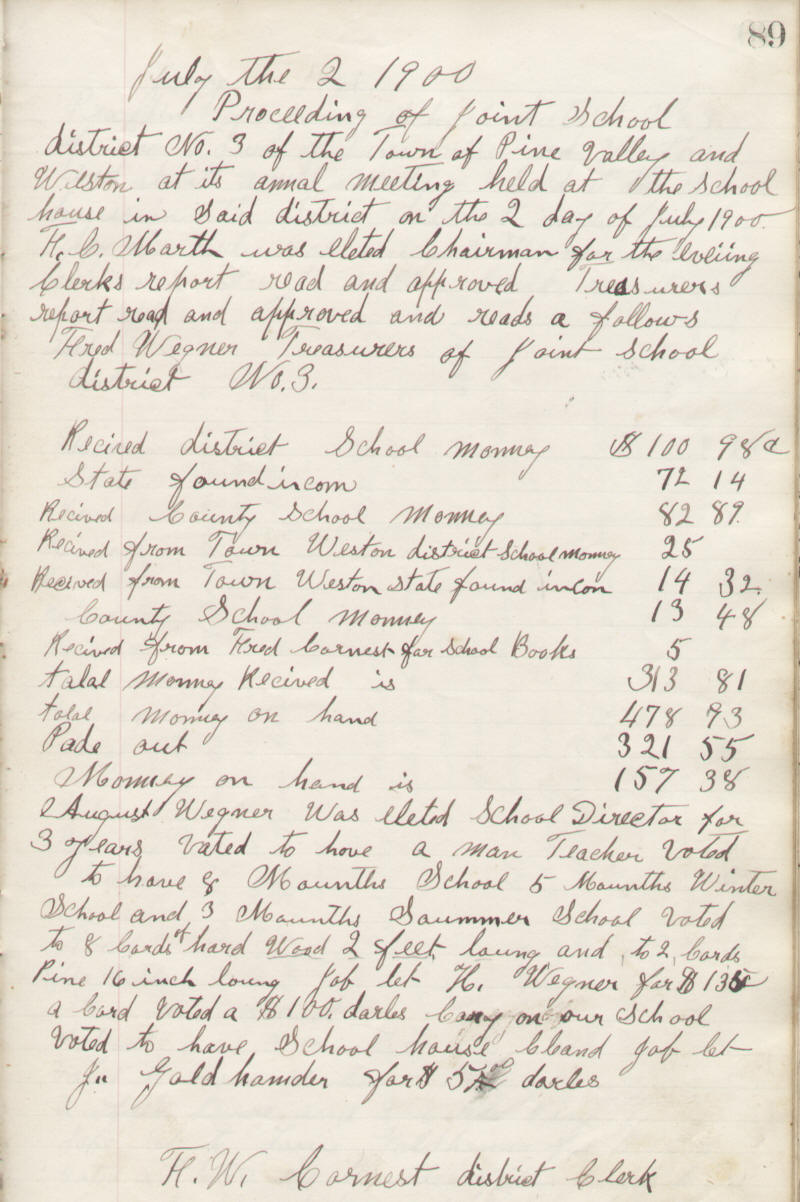 89
July the 2 1900
Proceeding of Joint School
district No. 3 of the Town of Pine Valley and
Weston at its annal meeting held at the School
house in Said district on the 2 day of July 1900.
H. C. Marth was eleted Chairman for the eveiing
Clerks report read and approved Treasurers
report read and approved and reads a follows
Fred Wegner Treasurers of Joint School
district No. 3.
Recived district School monney $ 100 98 c
State found incom 72 14
Recived County School Monney 82 89.
Recived from Town Weston district School monney 25
Recived from Town Weston State found incom 14 32.
County School Monney 13 48
Recived from Fred Cornest for School Books 5
talal Monney Recived is 313 81
total monney on hand 478 93
Pade out 321 55
Monney on hand is 157 38
August Wegner Was eleted School Director for
3 years Vated to have a man Teacher Voted
to have 8 Mounths School 5 Mounths Winter
School and 3 Mounths Saummer School Voted
to 8 Cords of hard Wood 2 feet loung and to 2 Cords
Pine 16 inch loung Job let H. Wegner for $
a Cord Voted a $ 100. darles on our School
Voted to have School house Cleand Job let
Galdhamder for $ 5 darles
H. W. Cornest district Clerk